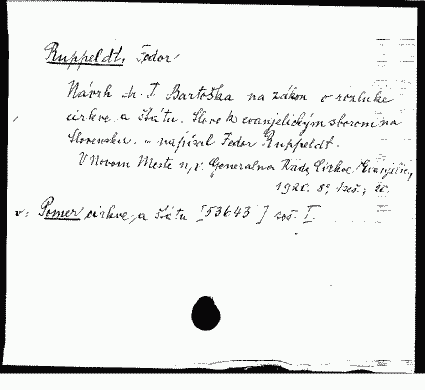 Ruppeldt, Fedor
Návrh dr. I. Bartoška na zákon o rozluke
cirkve a štátu. Slovo k evanjelickým sborom na
Slovensku. - napísal Fedor Ruppeldt.
V Novom Meste n/V. Generalna Rada Cirkve Evanjelic,
1920. 8°,
v: Pomer cirkve a štátu [53643] soš. I.